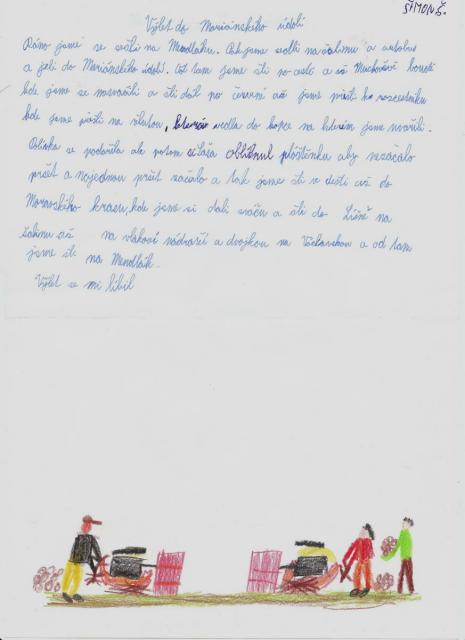 ŠIMON Š.
Výlet do Mariánského údolí
Ráno jsme se sešli na Mendláku. Pak jsme sedli na šalinu a autobus
a jeli do Mariánského údolí. Od tam jsme šli po cestě a až Muchově boudě
kde jsme se nasvačili a šli dál po červené až jsme přišli ke rozcestníku
kde jsme přišli na žlutou, která vedla do kopce na kterém jsme uvařili.
Polívka se podařila ale potom oblíknul pláštěnku aby nezačalo
pršet a najednou pršet začalo a tak jsme šli v dešti až do
Moravského krasu, kde jsme si dali sváču a šli do Líšně na
šalinu až na vlakové nádraží a dvojkou na Václavskou a od tam
jsme šli na Mendlák.
Výlet se mi líbil